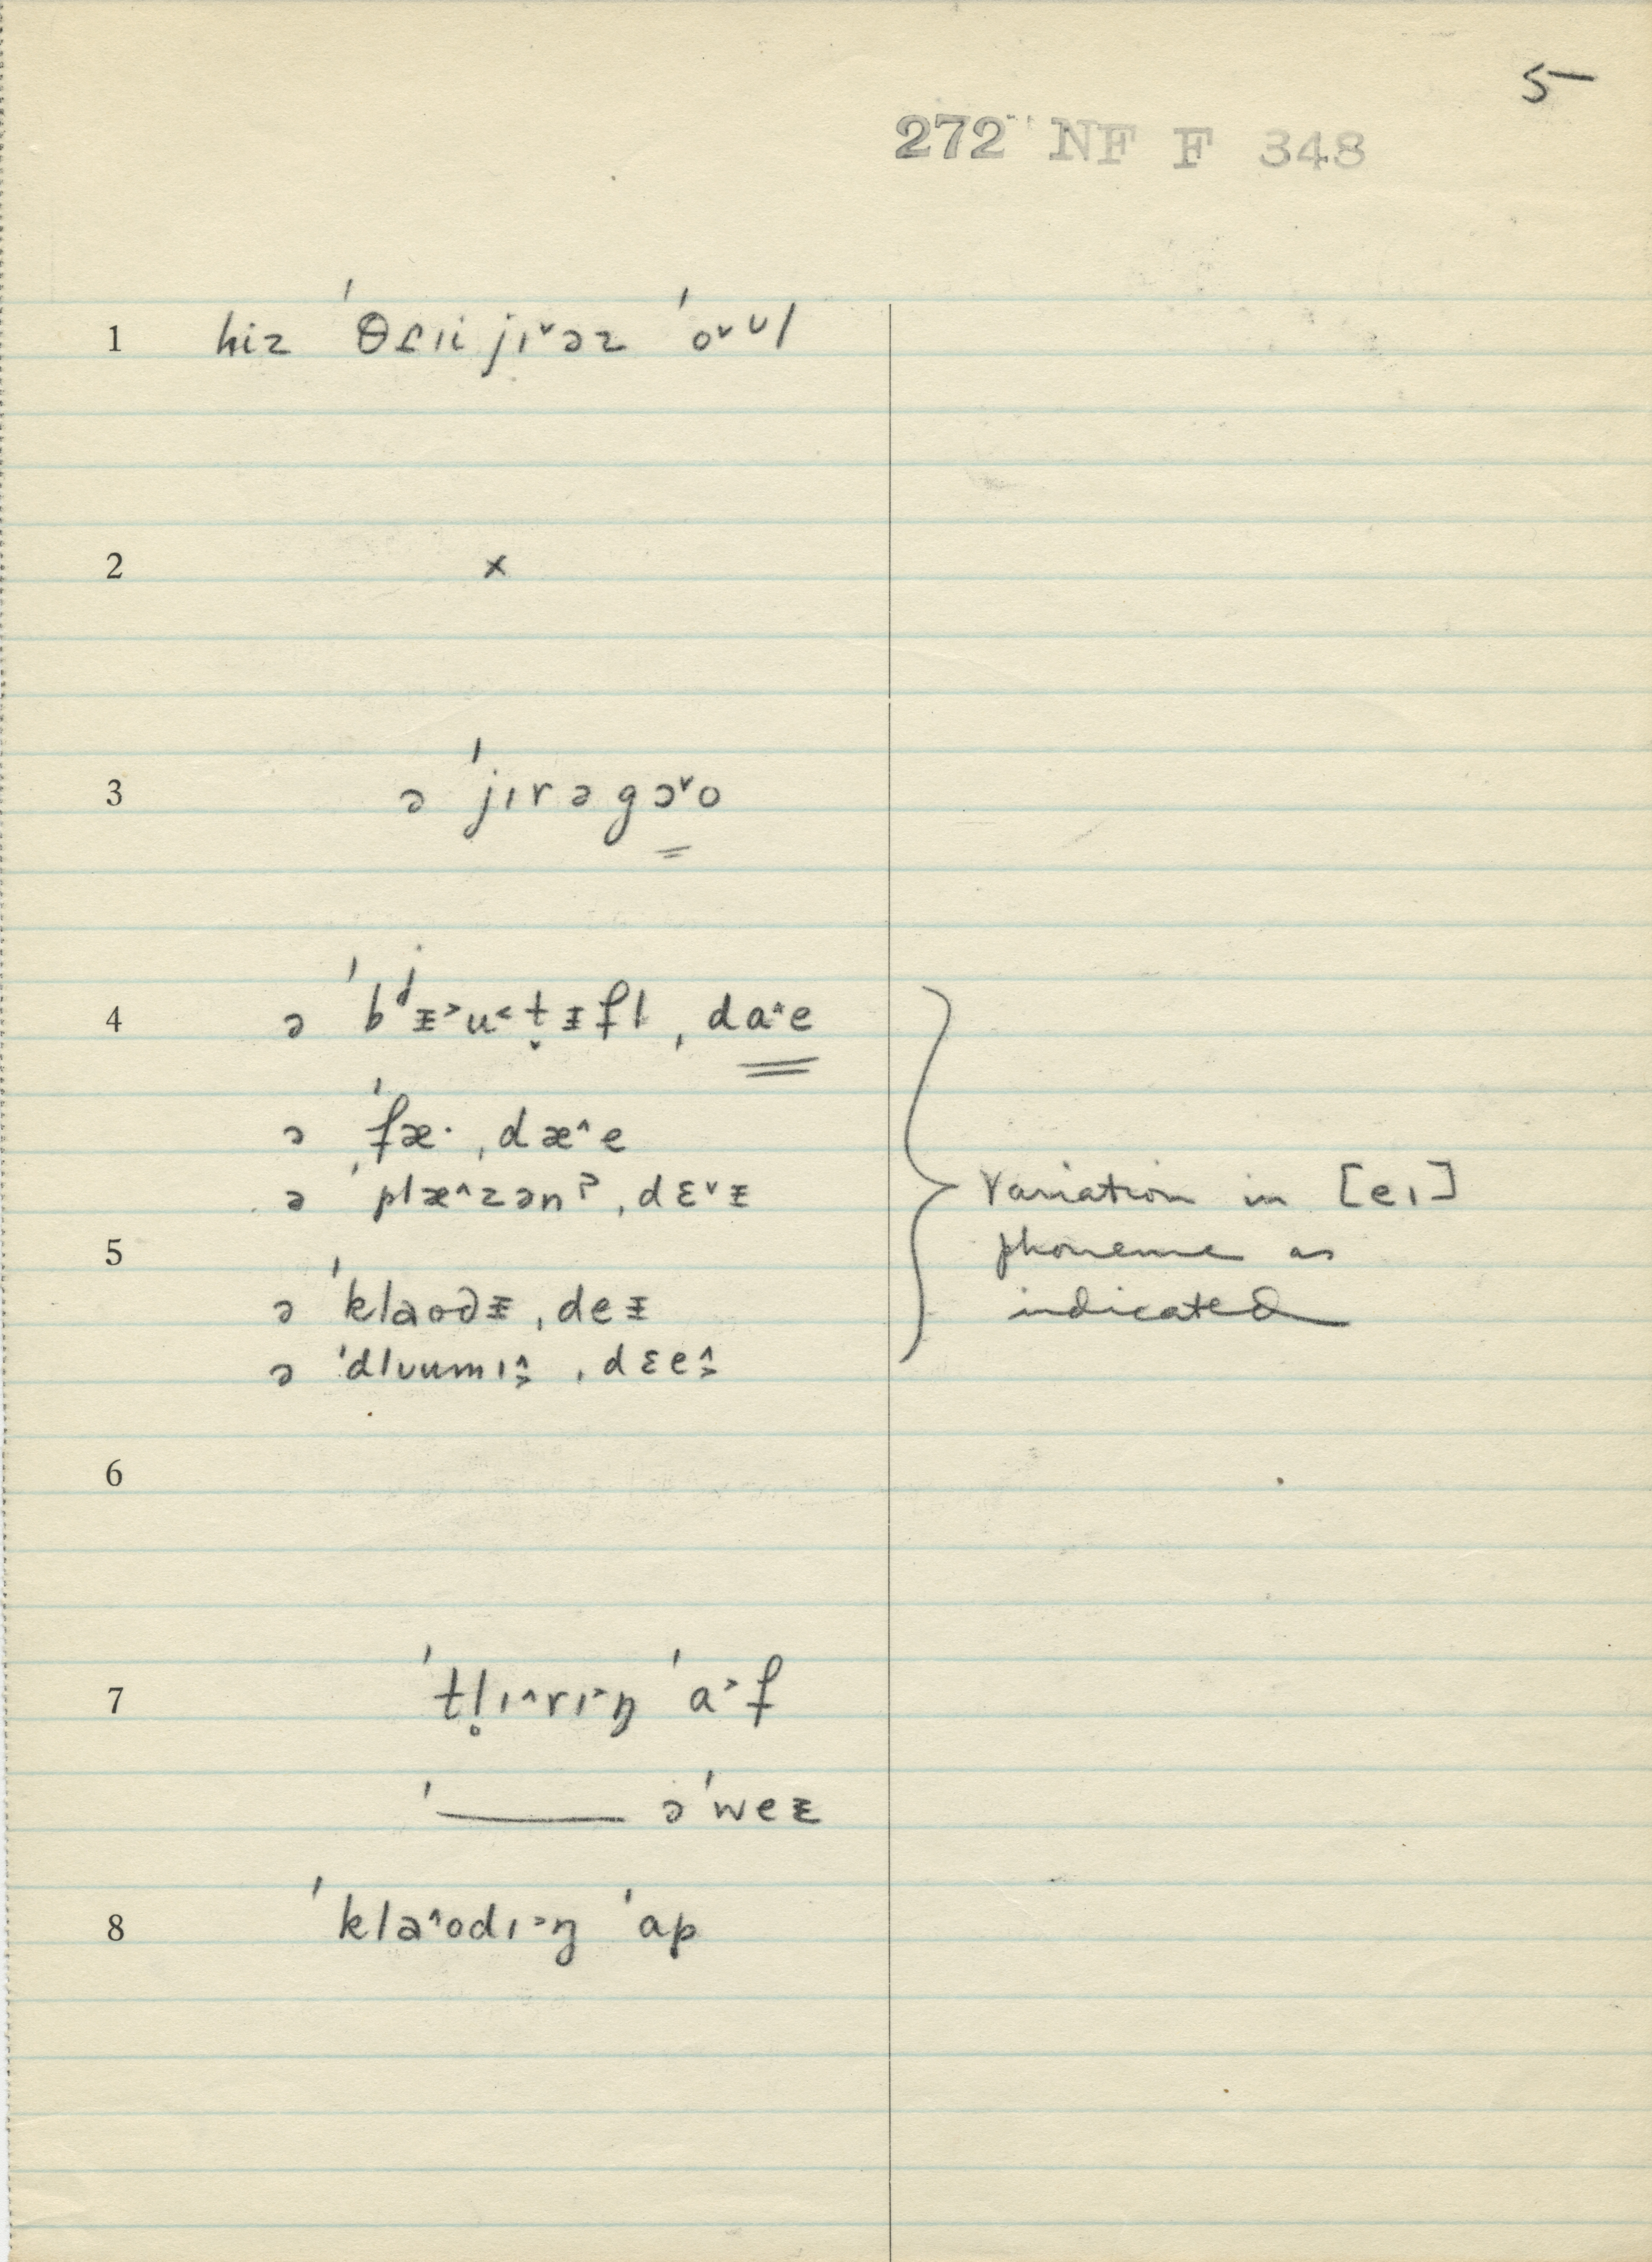 5
272 NF F 348
1 hiz ˈθɾɪi jɪ˅əz ˈo˅ʊl
2 x
3 ə ˈjɪrəgə˅o
4 ə ˈbʲᵻ˃u˂t̬ᵻfl ˌda˄e
ə ˈfæ· ˌdæ˄e
ə ˈplæ˄zənˀ ˌdɛ˅ᵻ
5
ə ˈklaodᵻ ˌdeᵻ
ə ˈdlʊumɪ˄˃ ˌdɛe˄˃
Variation in [eɪ]
phoneme as
indicated
6
7 ˈtl̥ɪ˄rɪ˃ŋ ˈa˃f
ˈ—— əˈweᵻ
8 ˈkla˄odɪ˃ŋ ˈap